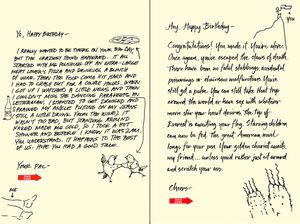 Yo, Happy Birthday—
I really wanted to be there on your big day
but the craziest thing happened. It all
started with me polishing off an extra large
meat lover's pizza and drinking a bunch
of wine. Then the food coma hit hard and
I had to crash out for a couple hours. When
I got up I watched a little video and then I
couldn't miss the dancing
Letterman. I started to get dressed and
I sprained my ankle putting on my jeans
(still a little drunk from the wine). It
wasn't too bad, but standing around
naked made me cold, so I took a hot
shower and before I knew it was 2am.
You understand. It happens to the best
of us. Hope you had a good time.
Your pal—
ME
Hey, Happy Birthday—
Congratulations! You made it. You're alive.
Once again, you've escaped the claws of death.
There have been no fatal stabbings, accidental
poisonings or chainsaw malfunctions. You've
still got a pulse. You can still take that trip
around the world or have sex with whatever-
more stir your heart desires. The top of
Everest is awaiting your flag. Starving children
can now be fed. The great American novel
longs for your pen. Your golden chariot awaits,
my friend... unless you'd rather just sit around
and scratch your ass.
Cheers—